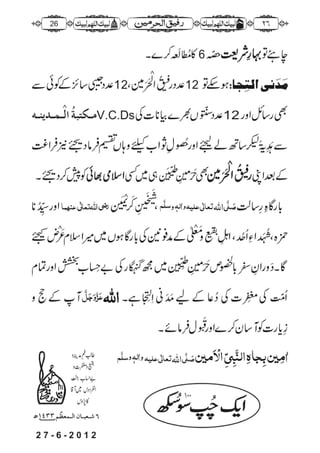 26 لبیک اللھم لبیک رفیق الحرمین لبیک اللھم لبیک ٢٦
چاہئے تو بہارِ شریعت حصّہ 6 کا مُطالَعہ کرے۔
مَدَنی التجا: ہو سکے تو 12 عدد رفیقُ الْحَرَمین، 12 عدد جیبی سائز کے کوئی سے
بھی رسائل اور 12 عدد سنّتوں بھرے بیانات کی V.C.Ds مکتبۃُ الْمدینہ
سے ہَدِیَّۃً لیکر ساتھ لے لیجئے اور حُصُولِ ثواب کیلئے وہاں تقسیم فرما دیجئے نیز فراغت
کے بعد اپنی رفیقُ الْحَرَمین بھی حَرَمینِ طَیِّبَین ہی میں کسی اسلامی بھائی کو پیش کر دیجئے۔
بارگاہِ رسالت صلی اللہ تعالی علیہ والہ وسلم، شَیخَینِ کریمَین رضی اللہ تعالی عنہما اور سیِّدُنا
حمزہ، شُہَدائے اُحُد، اہلِ بقیع و مَعلٰی کے مدفونین کی بارگاہوں میں میرا سلام عَرض کیجئے
گا۔ دَورانِ سفر بالخصوص حَرَمینِ طَیِّبَین میں مجھ گنہگار کی بے حساب بخشش اور تمام
اُمّت کی مغفرت کی دُعا کے لیے مَدَنی التجا ہے۔ اللہ عَزَّوَجَلَّ آپ کے حج و
زیارت کو آسان کرے اور قَبول فرمائے۔
اٰمین بِجاہِ النَّبِیِّ الْاَمین صلی اللہ تعالی علیہ والہ وسلم
طالبِ غمِ مدینہ و
بقیع و مغفرت و
بے حساب جنّت
الفردوس میں آقا
کا پڑوس
ایک چُپ سو سُکھ
٦ شعبان المعظم ١٤٣٣ھ
27-6-2012